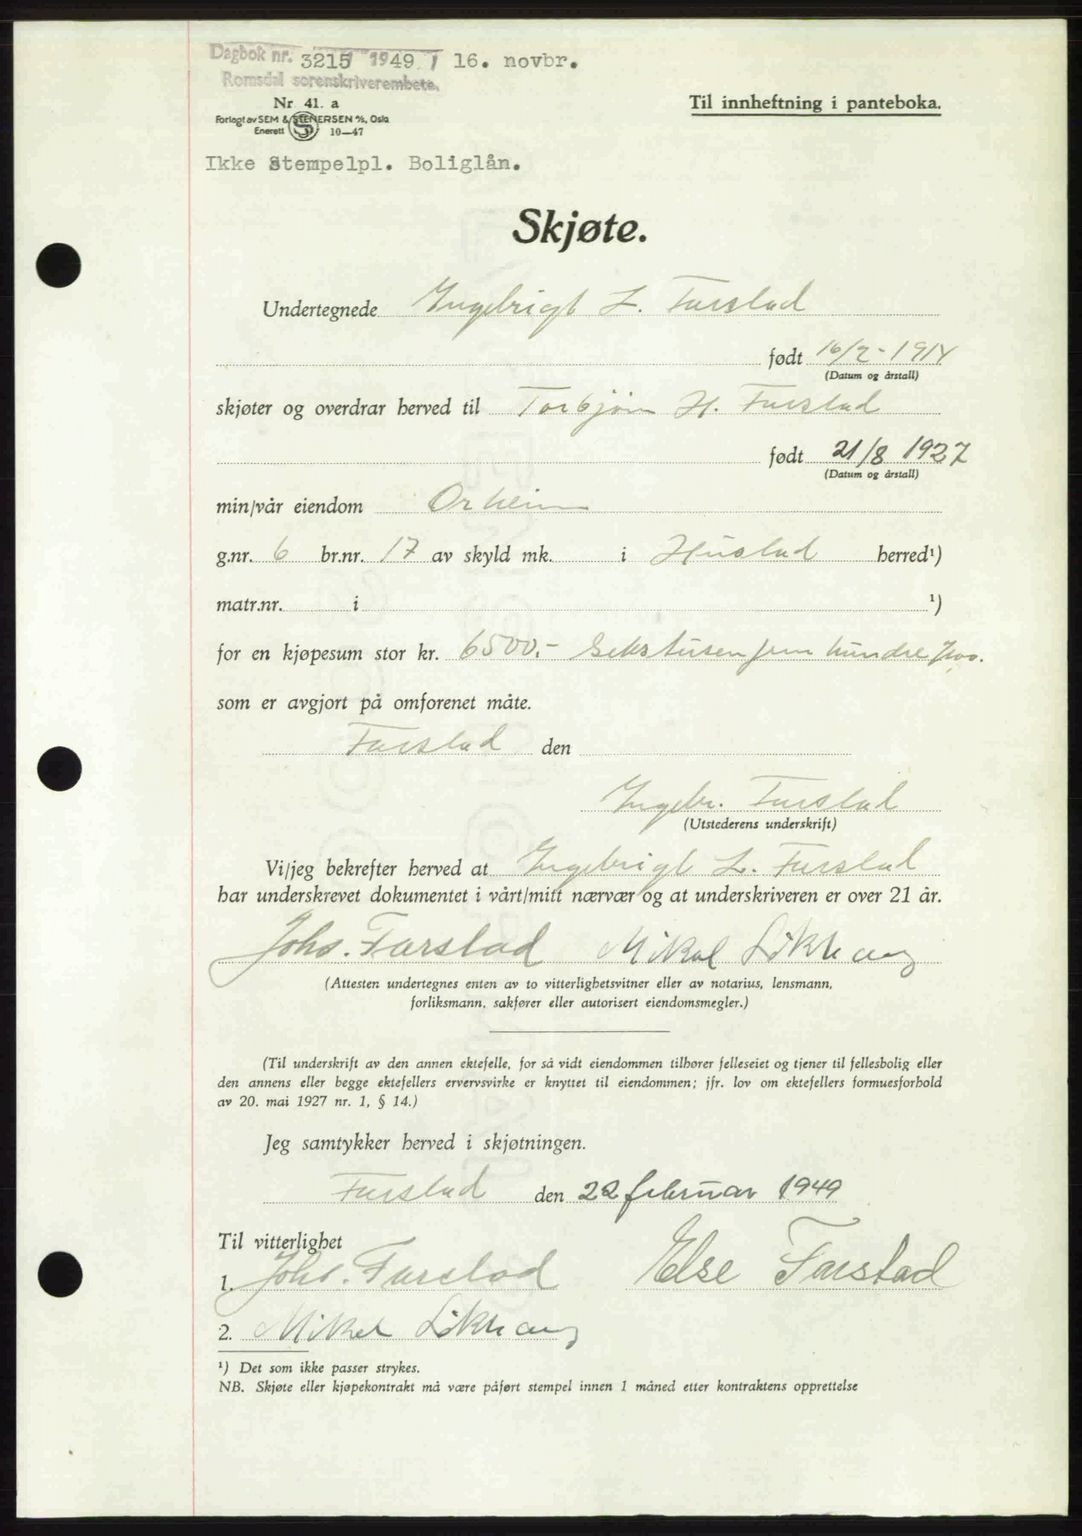 Dagbok nr. 3215 1949 / 16. novbr.
Romsdal sorenskriverembete.
Nr 41. a
Til innheftning i panteboka.
Forlagt av SEM & STENERSEN A/S, Oslo
Enerett S 10—47
Ikke Stempelpl. Boliglån.
Skjøte.
Undertegnede Ingebrigt L. Farstad
født 16/2 - 1914
(Datum og årstall)
skjøter og overdrar herved til Torbjørn H. Farstad
født 21/8 1927
(Datum og årstall)
min/vår eiendom Orheim
g.nr. 6 br.nr. 17 av skyld mk. i Hustad herred¹)
matr.nr. i ¹)
for en kjøpesum stor kr. 6500.- Sekstusenfemhundre
som er avgjort på omforenet måte.
Farstad den
Ingebr. Farstad
(Utstederens underskrift)
Vi/jeg bekrefter herved at Ingebrigt L. Farstad
har underskrevet dokumentet i vårt/mitt nærvær og at underskriveren er over 21 år.
Johs. Farstad Mikal Løkhaug
(Attesten undertegnes enten av to vitterlighetsvitner eller av notarius, lensmann,
forliksmann, sakfører eller autorisert eiendomsmegler.)
(Til underskrift av den annen ektefelle, for så vidt eiendommen tilhører felleseiet og tjener til fellesbolig eller
den annens eller begge ektefellers ervervsvirke er knyttet til eiendommen; jfr. lov om ektefellers formuesforhold
av 20. mai 1927 nr. 1, § 14.)
Jeg samtykker herved i skjøtningen.
Farstad den 22 februar 1949
Til vitterlighet
1. Johs. Farstad Else Farstad
2. Mikal Løkhaug
¹) Det som ikke passer strykes.
NB. Skjøte eller kjøpekontrakt må være påført stempel innen 1 måned etter kontraktens opprettelse